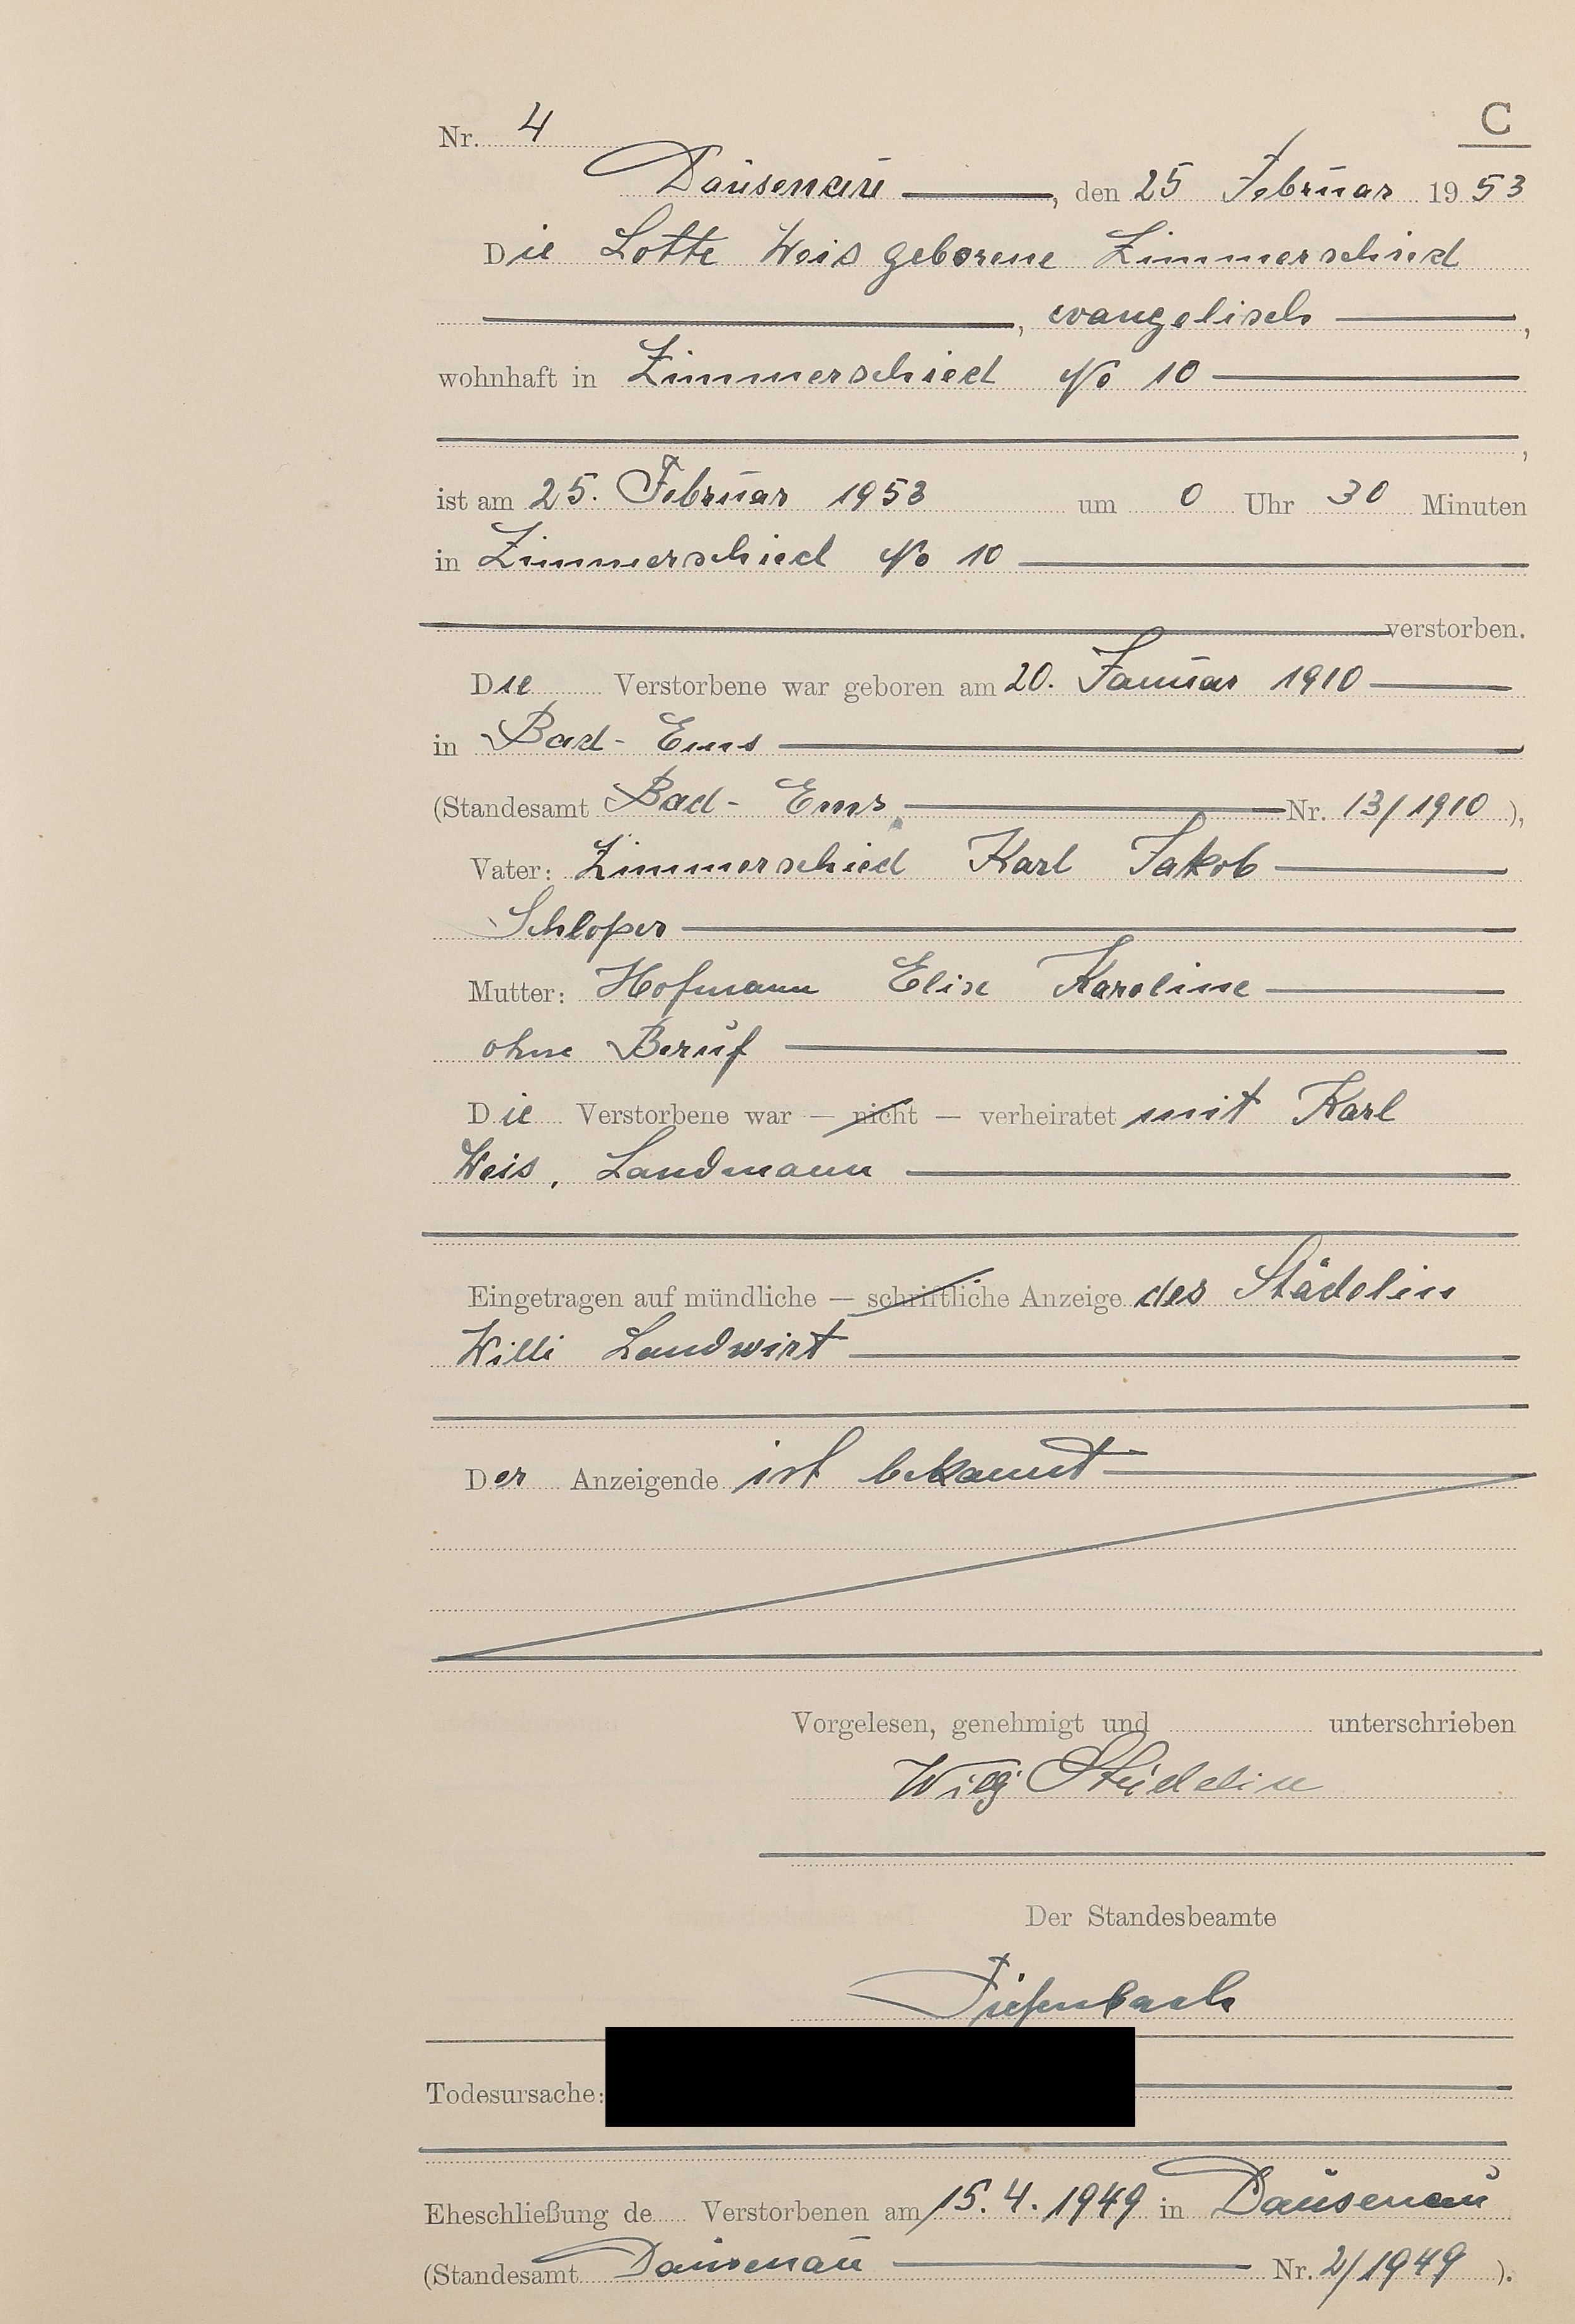 C
Nr. 4
Dausenau, den 25 Februar 1953
Die Lotte Weis geborene Zimmerschied
, evangelisch ,
wohnhaft in Zimmerschied No 10
,
ist am 25. Februar 1953 um 0 Uhr 30 Minuten
in Zimmerschied No 10
verstorben.
Die Verstorbene war geboren am 20. Januar 1910
in Bad-Ems
(Standesamt Bad-Ems Nr. 13/1910 ),
Vater: Zimmerschied Karl Jakob
Schlosser
Mutter: Hofmann Elise Karoline
ohne Beruf
Die Verstorbene war — nicht — verheiratet mit Karl
Weis, Landmann
Eingetragen auf mündliche — schriftliche Anzeige des Städelin
Willi Landwirt
Der Anzeigende ist bekannt
Vorgelesen, genehmigt und unterschrieben
Willy Städelin
Der Standesbeamte
Diefenbach
Todesursache:
Eheschließung de Verstorbenen am 15.4.1949 in Dausenau
(Standesamt Dausenau Nr. 2/1949 ).